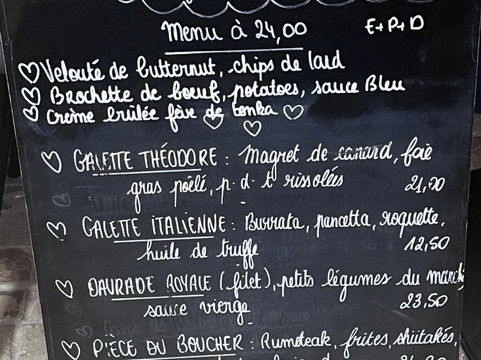 Menu à 24,00 E+P+D
Velouté de butternut, chips de lard
Brochette de boeuf, potatoes, sauce Bleu
Crème brûlée fève de tonka
GALETTE THÉODORE : Magret de canard, foie
gras poêlé, p. d. t rissolées 21,00
GALETTE ITALIENNE : Burrata, pancetta, roquette,
huile de truffe 12,50
DAURADE ROYALE (filet), petits légumes du marché
sauce vierge 23,50
PIÈCE DU BOUCHER : Rumsteak, frites, shiitakés,